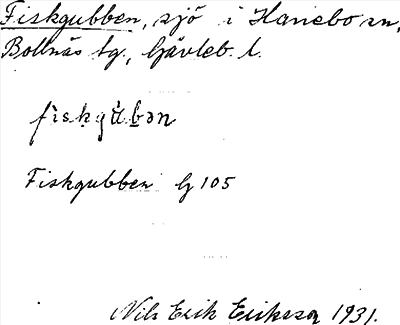 Fiskgubben, sjö i Hanebo sn,
Bollnäs tg., Gävleb. l.
fìskgùbən
Fiskgubben G 105
Nils Erik Eriksson 1931.